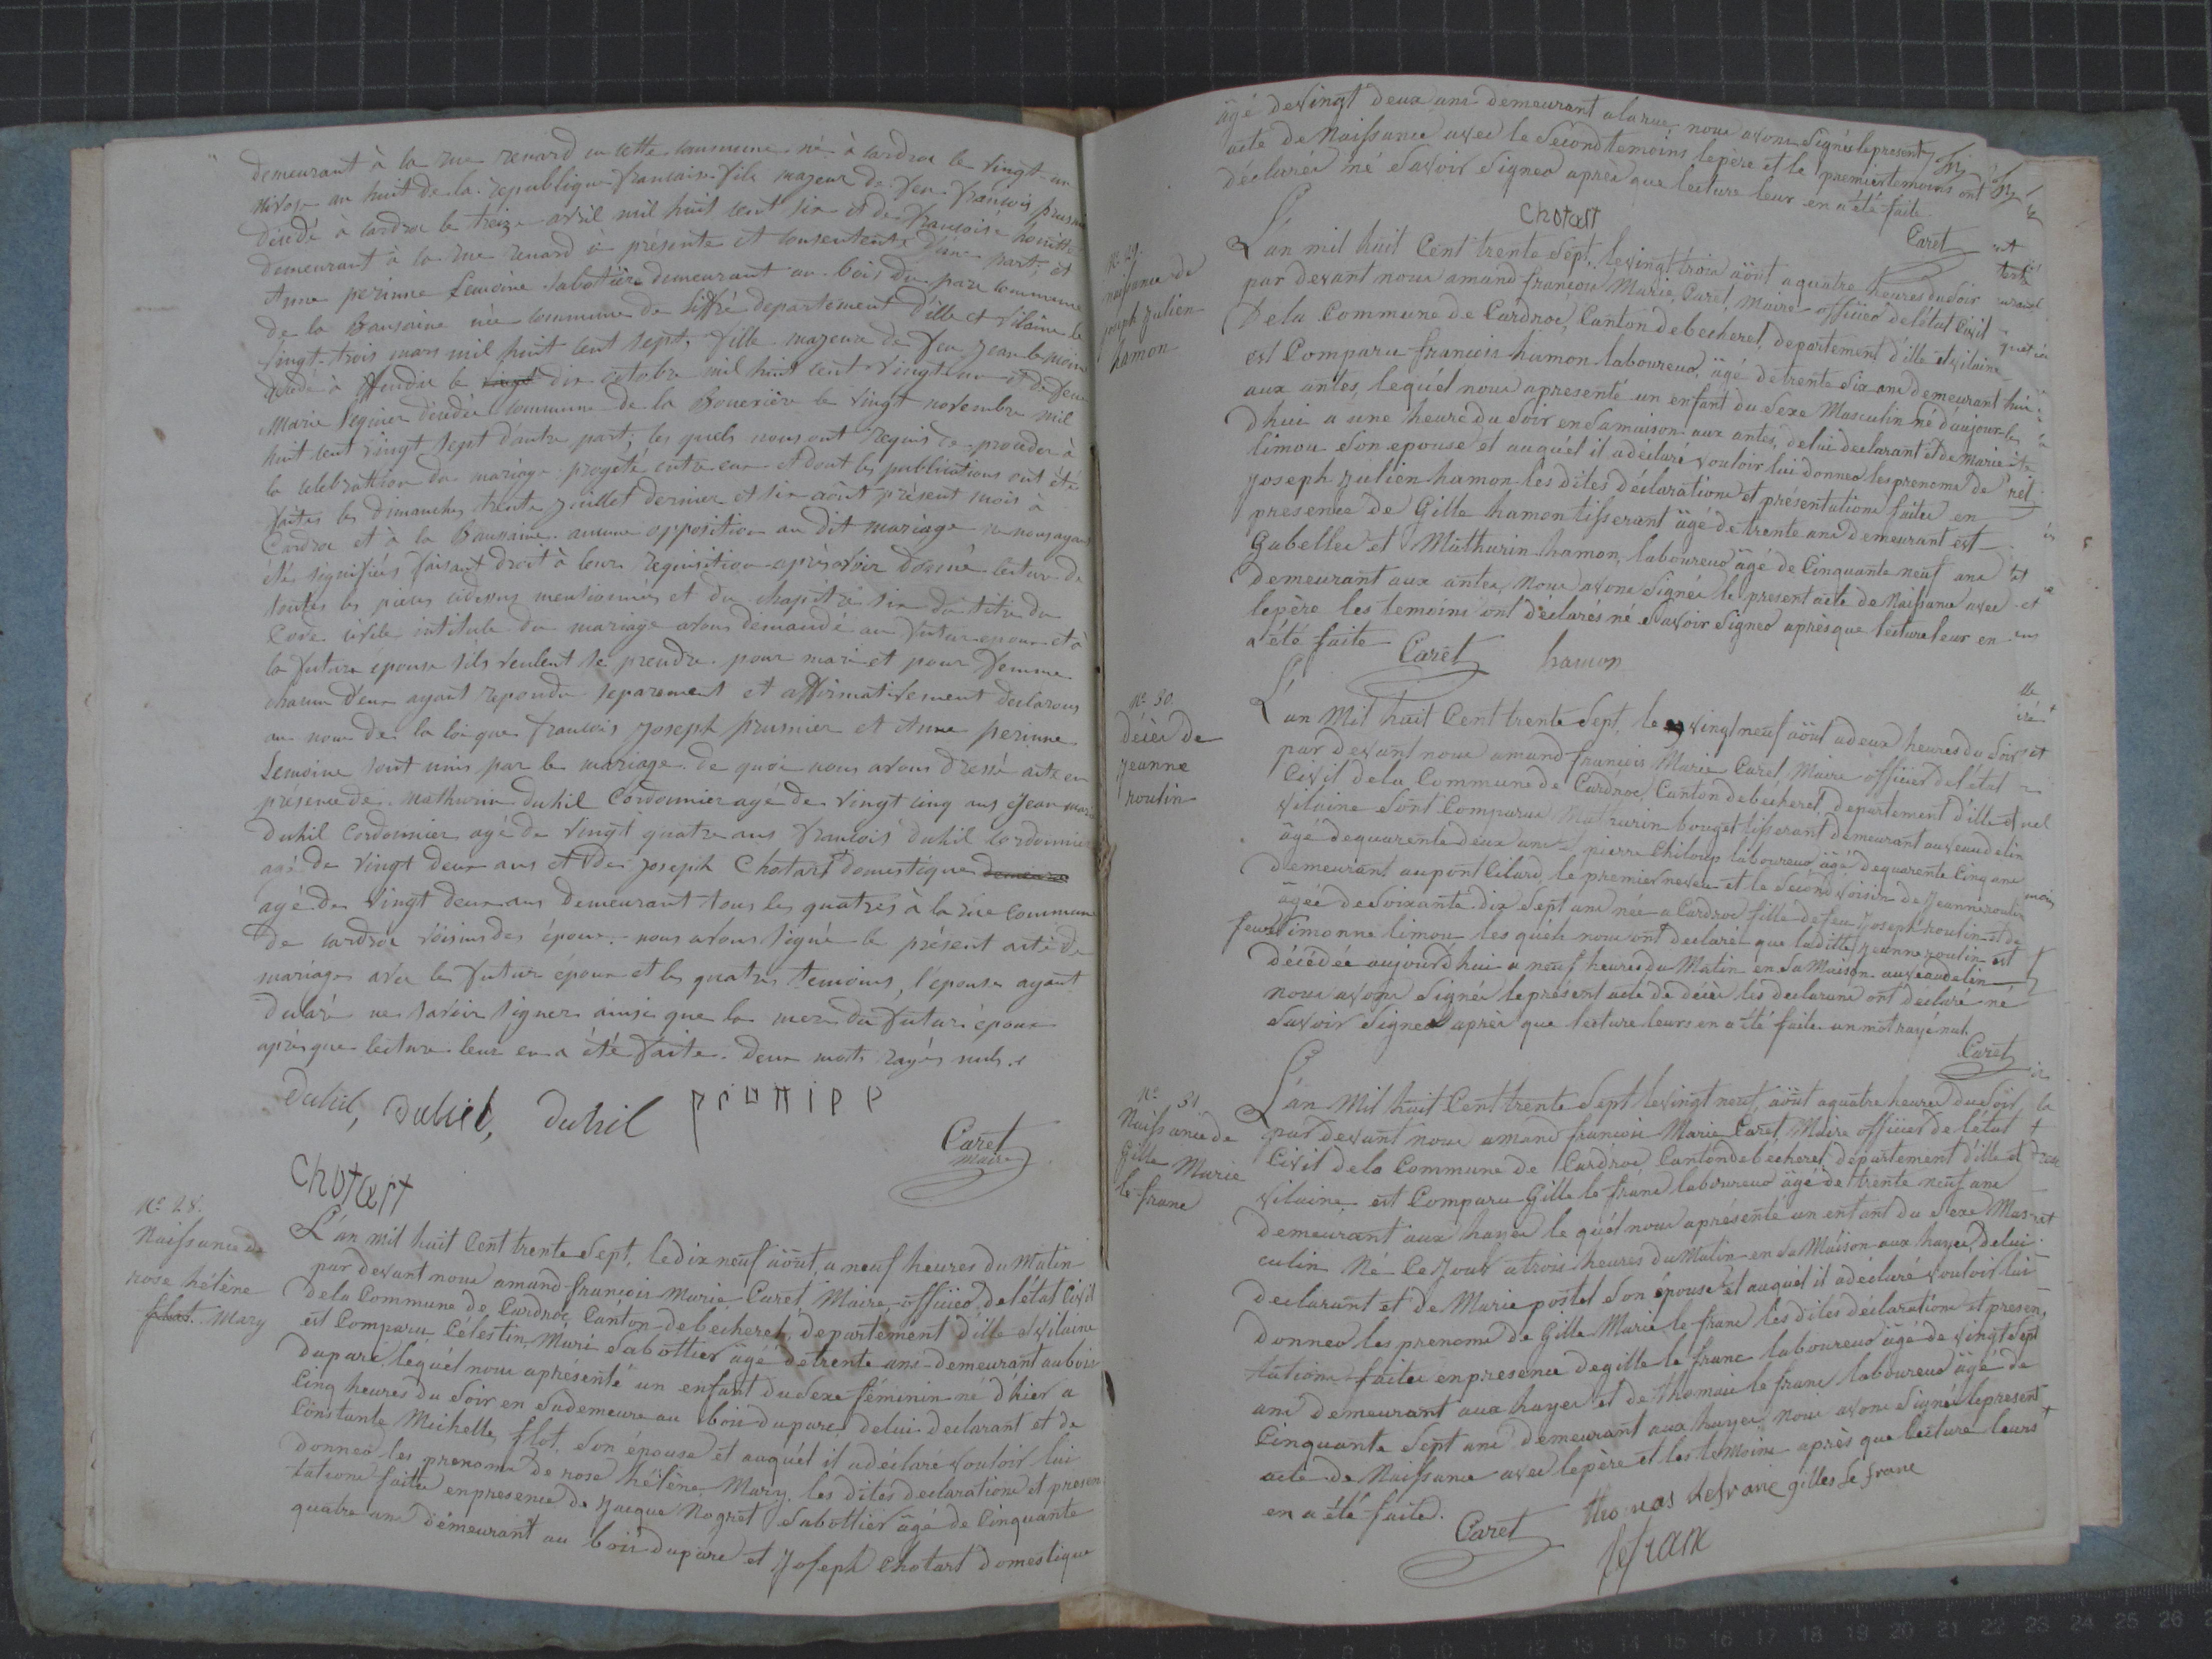 demeurant à la rue renard en cette commune né à cardroc le vingt un
nivose an huit de la republique francaise fils majeur de feu francois prusnier
décédé à cardroc le treize avril mil huit cent six et de francoise
demeurant à la rue renard à présente et consentente d'une part et
Anne perinne Lemoine sabotière demeurant au bois du parc commune
de la Baussaine née commune de Liffré departement d'ille et vilaine le
vingt-trois mars mil huit cent sept, fille majeure de feu jean lemoine
décédé à le vingt dix octobre mil huit cent vingt un et de feue
Marie décédée commune de la Bouexière le vingt novembre mil
huit cent vingt sept d'autre part; les quels nous ont requis de proceder à
la celebrattion du mariage progeté entre eux et dont les publications ont été
faites les dimanches trente juillet dernier et six aout présent mois à
Cardroc et à la Baussaine. aucune opposition au dit mariage ne nous ayant
été signifiée faisant droit à leur requisition après avoir donné lecture de
toutes les pièces cidessus mentionnées et du chapitre six du titre du
Code civile intitule du mariage avons demandé au futur epoux et à
la future épouse s'ils veulent se prendre pour mari et pour femme
chacun d'eux ayant repondu separement et affirmativement declarons
au nom de la loi que francois joseph prusnier et Anne perinne
Lemoine sont unis par le mariage. de quoi nous avons dressé acte en
présence de mathurin duhil Cordonnier agé de vingt cinq ans jean marie
duhil Cordonnier agé de vingt quatre ans francois duhil cordonnier
agé de vingt deux ans et de joseph Chotart domestique demeurant
agé de vingt deux ans demeurant tous les quatres à la rue commune
de cardroc voisins des époux. nous avons signé le présent acte de
mariage avec le futur époux et les quatres temoins, l'épouse ayant
declaré ne savoir signer ainsi que la mere du futur époux
après que lecture leur en a été faite. deux mots rayés nuls.
Duhil, Duhil, Duhil
Caret
maire
Chotart
No. 28.
Naissance de
rose hélène
flot. Mary
L'an mil huit Cent trente Sept, le dix neuf août, a neuf heures du Matin
par devant nous amand françois Marie Caret, Maire, officier de l'état Civil
de la Commune de Cardroc, Canton de becherel, departement d'ille et vilaine
est Comparu, Célestin Mari Sabottier âgé de trente ans demeurant au bois
du parc, lequél nous aprésénté un enfant du Sexe féminin né d'hier a
Cinq heures du Soir en Sa demeure au bois du parc, delui declarant et de
Constante Michelle, flot, Son épouse et auquél il adéclaré vouloir lui
donner les prenoms de rose hélène Mary, les dites declarations et presen
tations faittes enpresence de jacque Nogret Sabottier âgé de Cinquante
quatre ans démeurant au bois du parc et Joseph Chotart domestique
âgé de vingt deux ans demeurant a la rue, nous avons Signée le present
acte de Naissance avec le Second temoins, le père et le premier temoins ont
déclarés né Savoir Signer après que lecture leur en a été faite.
Chotart
Caret
No. 29.
naissance de
joseph Julien
hamon
L'an mil huit Cent trente Sept, le vingt trois août a quatre heures du Soir
par devant nous amand francois Marie, Caret, Maire officier de létat Civil
De la Commune de Cardroc, Canton de becherel, departement d'ille et vilaine
est Comparu francois hamon laboureur, âgé de trente Six ans demeurant
aux antes, lequél nous apresenté un enfant du Sexe Masculin né d'aujour
dhui a une heure du Soir en Sa maison aux antes, de lui declarant et de Marie
limou Son epouse et auquél il a déclaré vouloir lui donner les prenoms de
joseph Julien hamon les dites déclarations et présentations faites en
presence de Gille hamon tisserant âgé de trente ans demeurant est
Gabelles et Mathurin hamon, laboureur âgé de Cinquante neuf ans
demeurant aux antes, Nous avons Signée le present acte de Naissance avec
le père les temoins ont déclarés né Savoir Signer après que lecture leur en
a été faite
Caret
hamon
No. 30.
décès de
jeanne
roulin
L'an Mil huit Cent trente Sept, le vingt neuf août a deux heures du Soir
par devant nous amand françois Marie Caret, Maire officier de létat
Civil de la Commune de Cardroc, Canton de bécherel, departement d'ille et
vilaine Sont Comparus Mathurin bouget tisserant, demeurant au veaudelin
âgé de quarente deux ans, pierre Chiloup laboureur âgé de quarente Cinq ans
Demeurant au pont Cilard, le premier neveu et le Second voisin de Jeanne roulin
âgée de Soixante dix Sept ans née a Cardroc fille de feu Joseph roulin et de
feue Simonne limou les quels nous ont declaré que la ditte Jeanne roulin est
décédée aujourd'hui a neuf heures du Matin en Sa Maison au veaudelin
nous avons Signée le présent acte de décès les declarans ont declaré né
Savoir Signer après que lecture leurs en a été faite un mot rayé nul.
Caret
No. 31
Naissance de
Gille Marie
le franc
L'an Mil huit Cent trente Sept le vingt neuf, août a quatre heures du Soir
par devant nous amand francois Marie Caret, Maire officier de létat
Civil de la Commune de Cardroc, Canton de bécherel departement d'ille et
vilaine, est Comparu Gille le franc laboureur âgé de trente neuf ans
demeurant aux hayes le quél nous aprésente un enfant du Sexe Mas
culin Né Ce Jour a trois heures du Matin en Sa Maison aux hayes, delui
declarant et de Marie postel Son épouse et auquél il a déclaré vouloir lui
donner les prenoms de Gille Marie le franc les dites déclarations et presen
tations faites en presence de gille le franc laboureur âgé de vingt Sept
ans demeurant aux hayes et de thomas le franc laboureur âgé de
Cinquante Sept ans demeurant aux hayes, nous avons Signé le present
acte de Naissance avec le père et les temoins après que lecture leurs
en a été faite.
Caret
thomas lefranc gilles le franc
lefranc